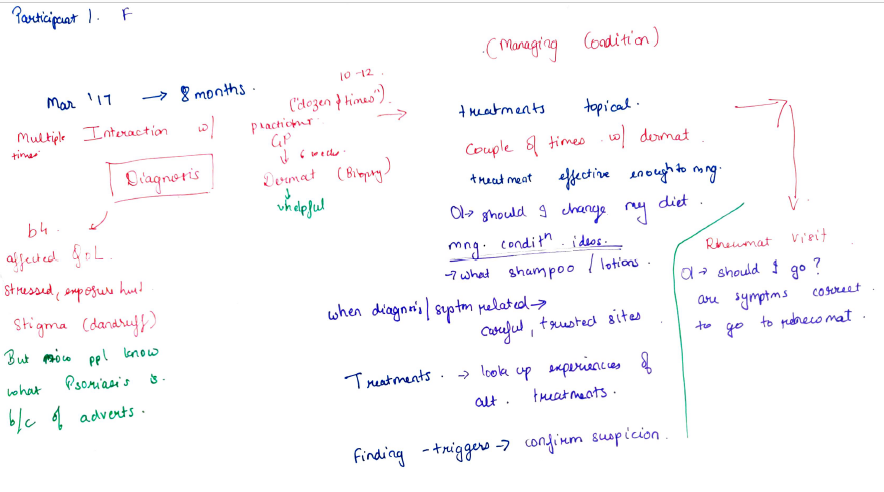 Participant 1. F
Mar '17 → 8 months.
Multiple Interaction w/
times
Diagnosis
b4.
affected QoL.
Stressed, exposure
Stigma (dandruff)
But ppl know
what Psoriasis is
b/c of adverts.
10-12
("dozen of times") →
practioner
GP
↓ 6 weeks.
Dermat (Biopsy)
↓
vhelpful
(Managing Condition)
treatments topical.
Couple of times w/ dermat
treatment effective enough to mng.
OI→ should I change my diet.
mng. condith. ideas.
→ what shampoo / lotions.
when diagnosis/ symptm related →
careful, trusted sites
Treatments. → look up experiences of
alt. treatments.
Finding -triggers → confirm suspicion.
Rheumat Visit
OI→ should I go?
are symptms correct
to go to